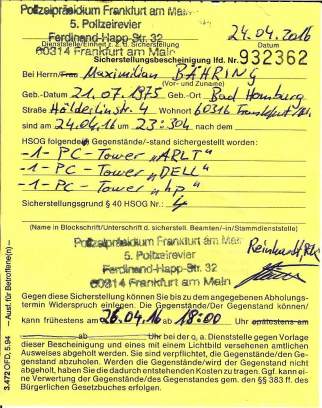 Polizeipräsidium Frankfurt am Main
5. Polizeirevier
Ferdinand-Happ-Str. 32
60314 Frankfurt am Main
24.04.2016
Dienststelle/Einheit z. Z. d. Sicherstellung
Datum
Sicherstellungsbescheinigung lfd. Nr. 932362
Bei Herrn/Frau Maximilian BÄHRING
(Vor- und Zuname)
Geb.-Datum 21.07.1975 Geb.-Ort Bad Homburg
Straße Hölderlinstr. 4 Wohnort 60316 Frankfurt/M.
sind am 24.04.16 um 23:30 h nach dem
HSOG folgende(r) Gegenstände/-stand sichergestellt worden:
-1- PC-Tower „ARLT"
-1- PC-Tower „DELL"
-1- PC-Tower „hp"
Sicherstellungsgrund § 40 HSOG Nr.: 4
(Name in Blockschrift/Unterschrift d. sicherstell. Beamten/-in/Stammdienststelle)
Polizeipräsidium Frankfurt am Main
5. Polizeirevier
Ferdinand-Happ-Str. 32
60314 Frankfurt am Main
Reinhardt,
Gegen diese Sicherstellung können Sie bis zu dem angegebenen Abholungs-
termin Widerspruch einlegen. Die Gegenstände/Der Gegenstand können/
kann frühestens am 26.04.16 ab 18:00 Uhr spätestens am
ab Uhr bei der o. a. Dienststelle gegen Vorlage
dieser Bescheinigung und eines mit einem Lichtbild versehenen amtlichen
Ausweises abgeholt werden. Sie sind verpflichtet, die Gegenstände/den Ge-
genstand abzuholen. Werden die Gegenstände/wird der Gegenstand nicht
abgeholt, haben Sie die dadurch entstehenden Kosten zu tragen. Ggf. kann ei-
ne Verwertung der Gegenstände/des Gegenstandes gem. den §§ 383 ff. des
Bürgerlichen Gesetzbuches erfolgen.
3.472 OFD, 5.94 – Ausf. für Betroffene(n) –